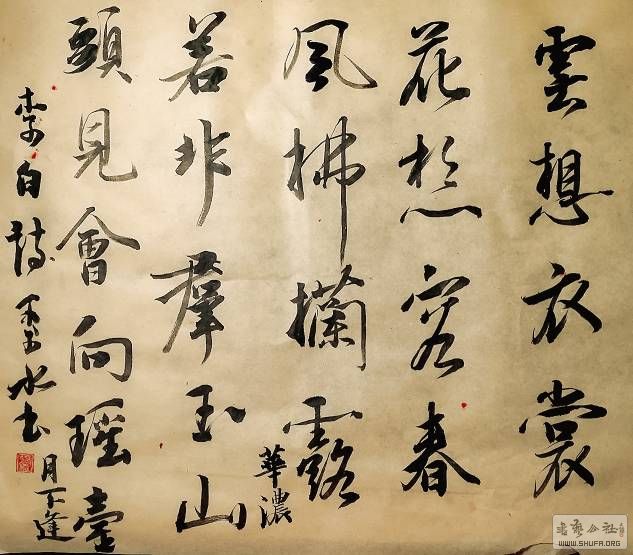 雲想衣裳
花想容春
風拂攔露
華濃
若非羣玉山
頭見會向瑶臺
月下逢
李白詩
水书
书艺公社
WWW.SHUFA.ORG